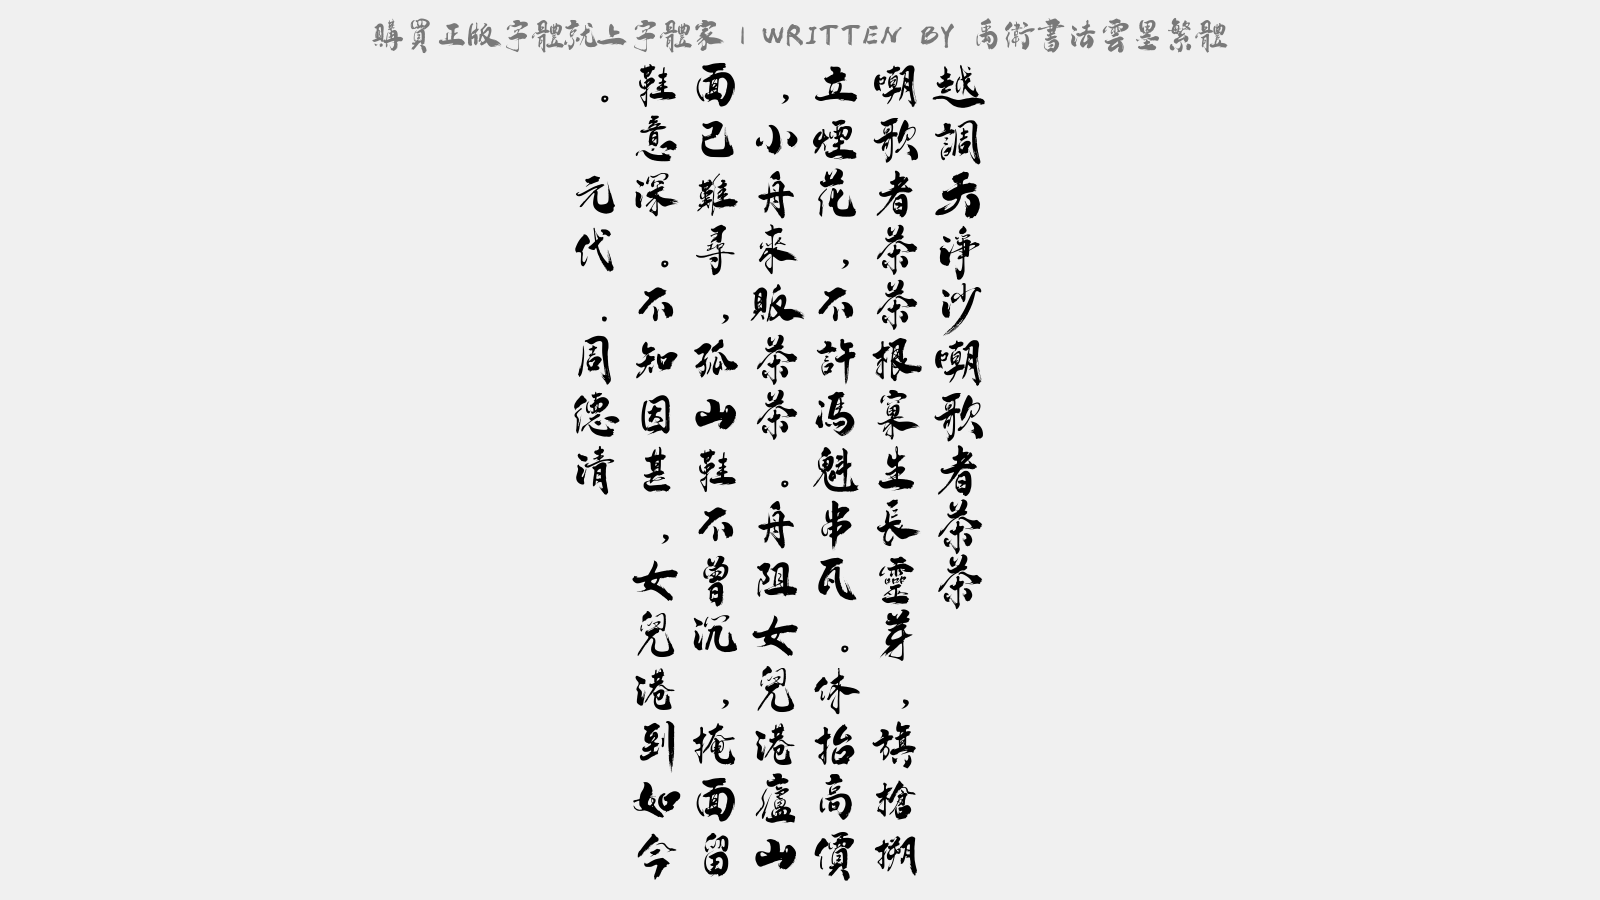 購買正版字體就上字體家 | WRITTEN BY 禹衛書法雲墨繁體
越調天淨沙嘲歌者茶茶
嘲歌者茶茶根窠生長靈芽，旗槍搠
立煙花，不許馮魁串瓦。休抬高價
，小舟來販茶茶。舟阻女兒港廬山
面已難尋，孤山鞋不曾沉，掩面留
鞋意深。不知因甚，女兒港到如今
。 元代.周德清